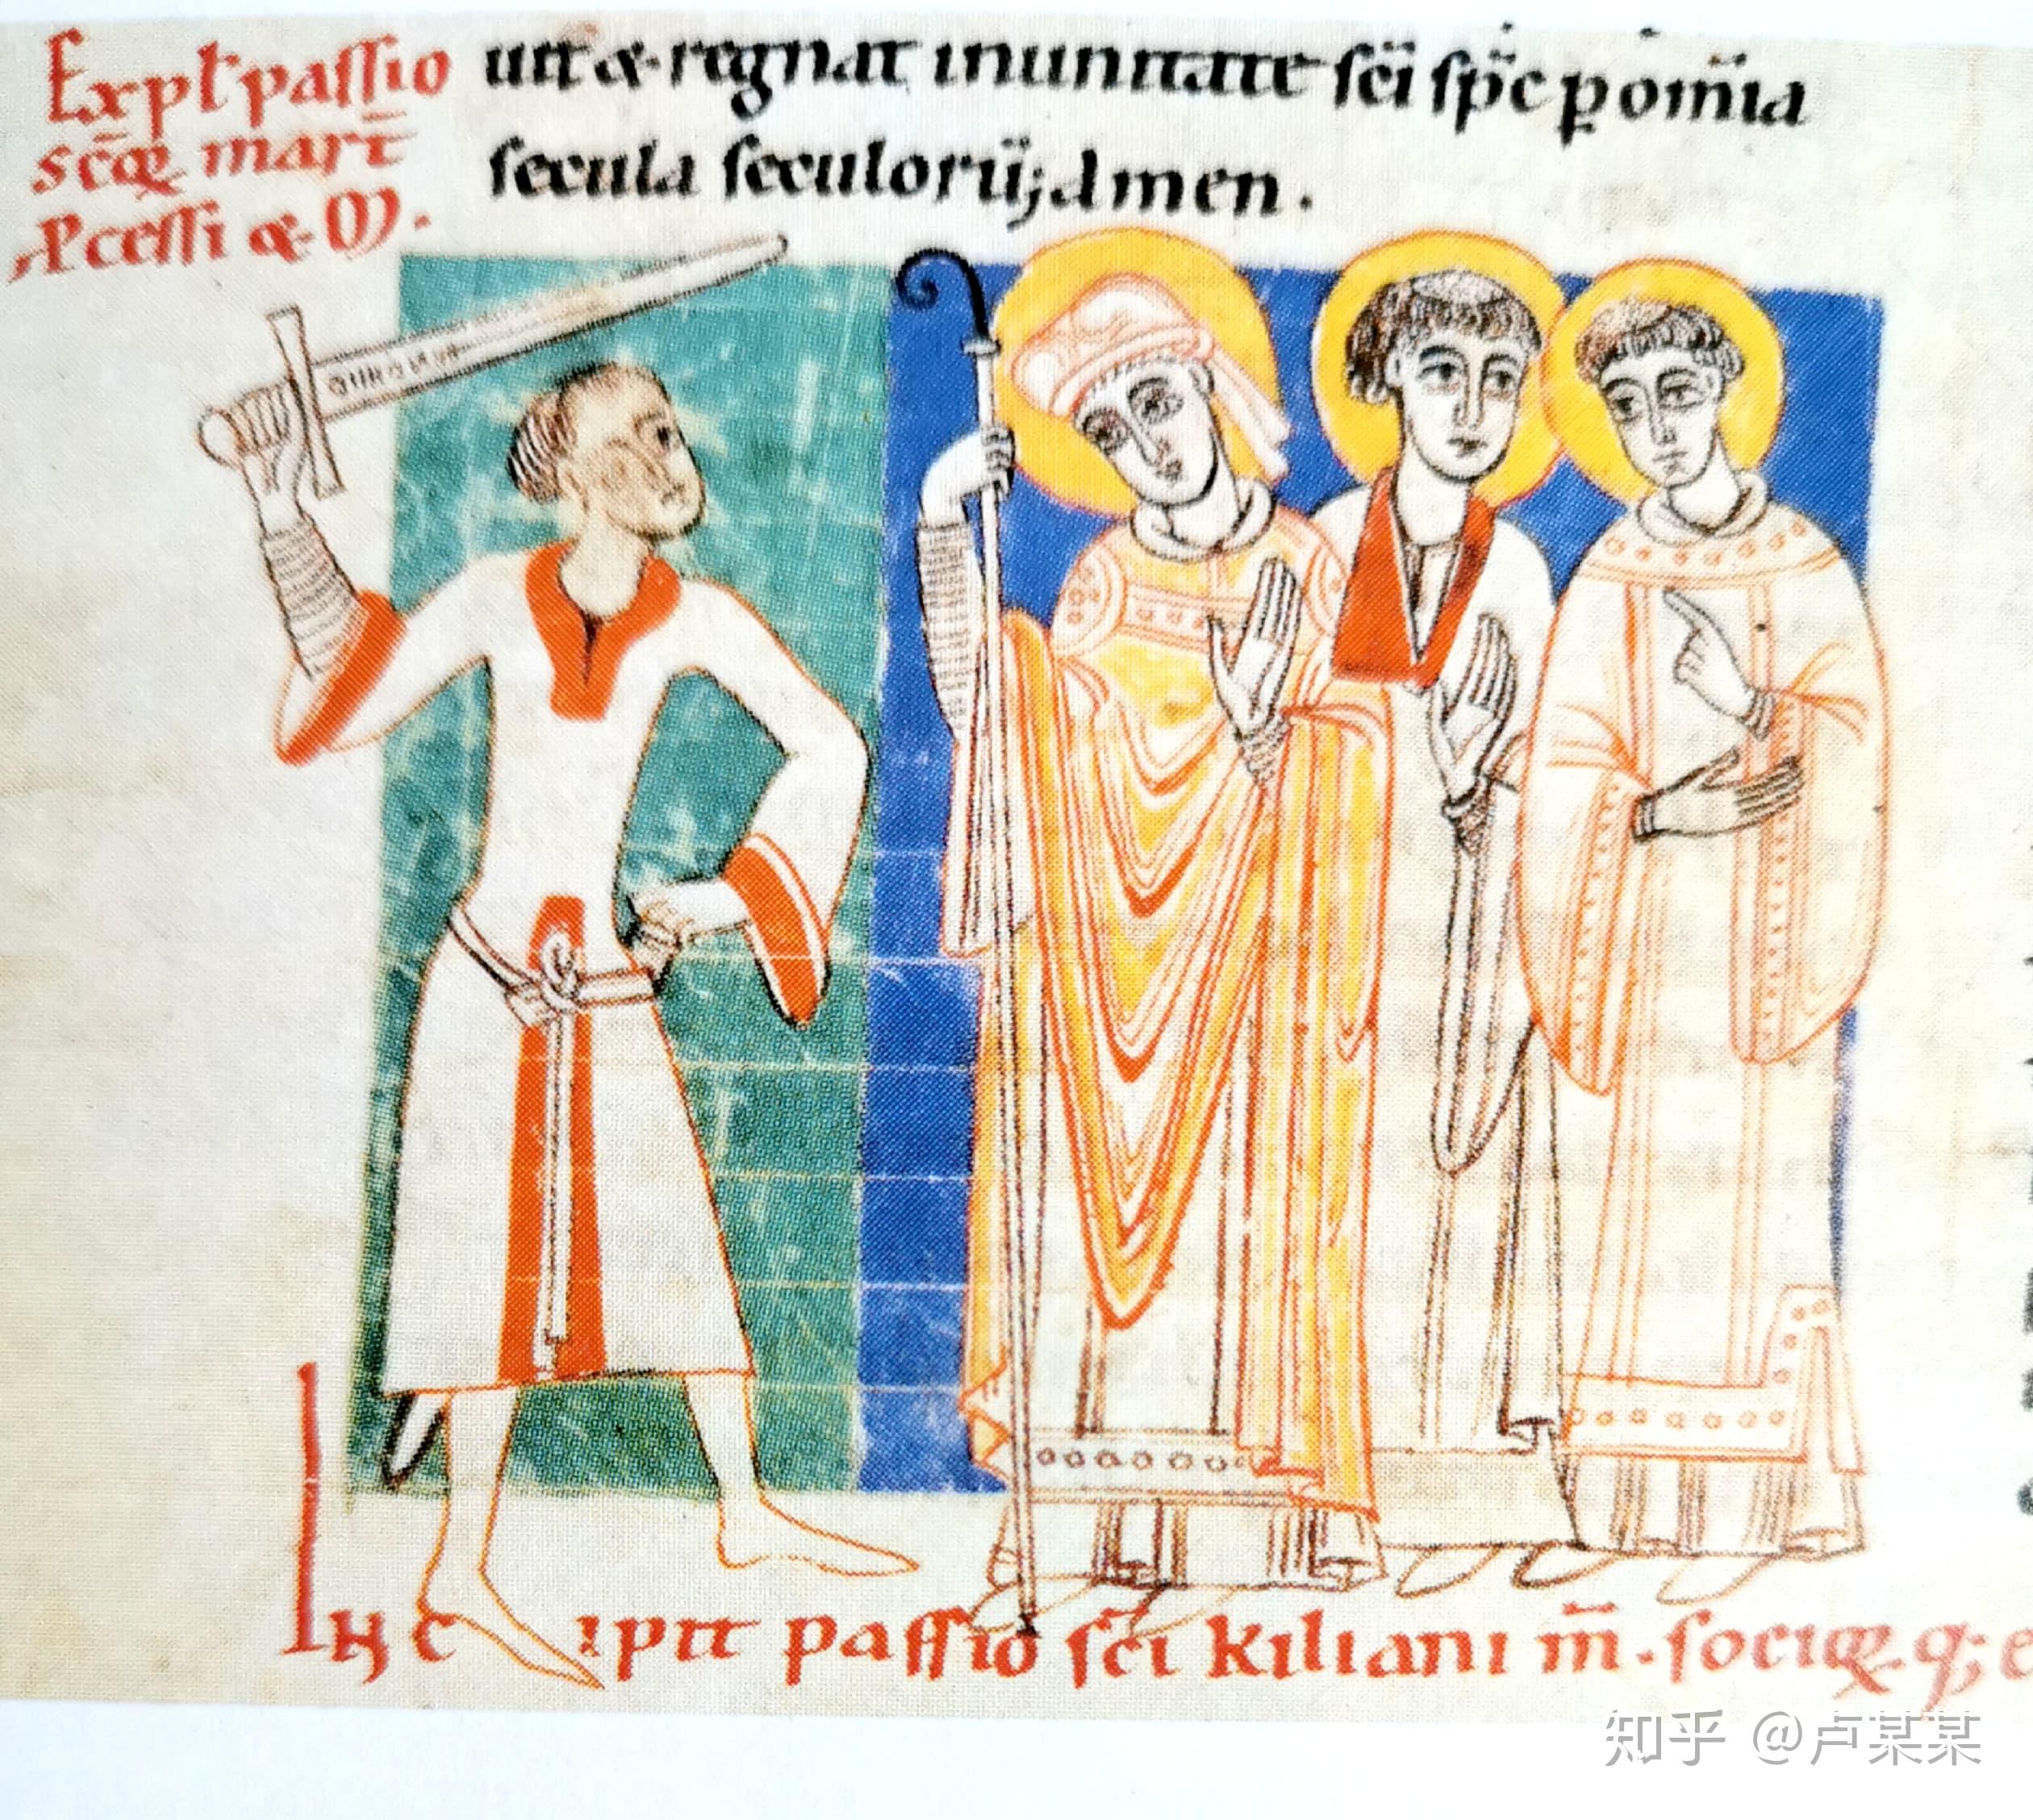 Expl̄ passio
sc̄oꝝ mart̄
Pcessi & M.
uit & regnat inunitate sc̄i sp̄c p om̄ia
secula seculorū; Amen.
Inc ipit passio sc̄i kiliani m̄. socioꝝ q; e
知乎 @卢某某